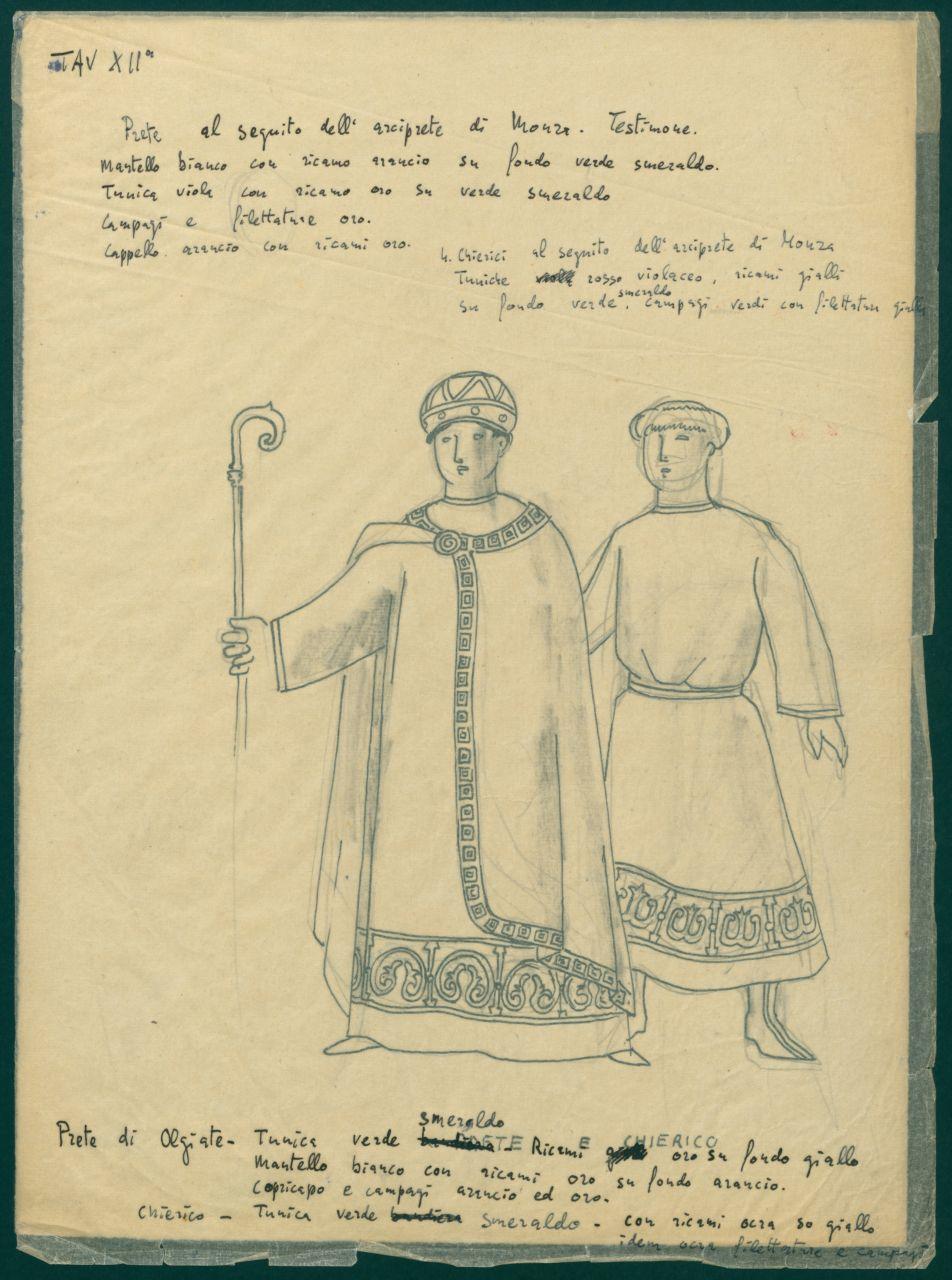 TAV XIIª
Prete al seguito dell' arciprete di Monza. Testimone.
Mantello bianco con ricamo arancio su fondo verde smeraldo.
Tunica viola con ricamo oro su verde smeraldo
Campagi e filettature oro.
Cappello arancio con ricami oro.
4. Chierici al seguito dell'arciprete di Monza
Tuniche viola rosso violaceo, ricami gialli
smeraldo
su fondo verde, campagi verdi con filettature gialle
smeraldo
Prete di Olgiate - Tunica verde bandiera - Ricami oro su fondo giallo
PRETE E CHIERICO
Mantello bianco con ricami oro su fondo arancio.
Copricapo e campagi arancio ed oro.
Chierico - Tunica verde bandiera smeraldo - con ricami ocra so giallo
idem ocra filettature e campagi